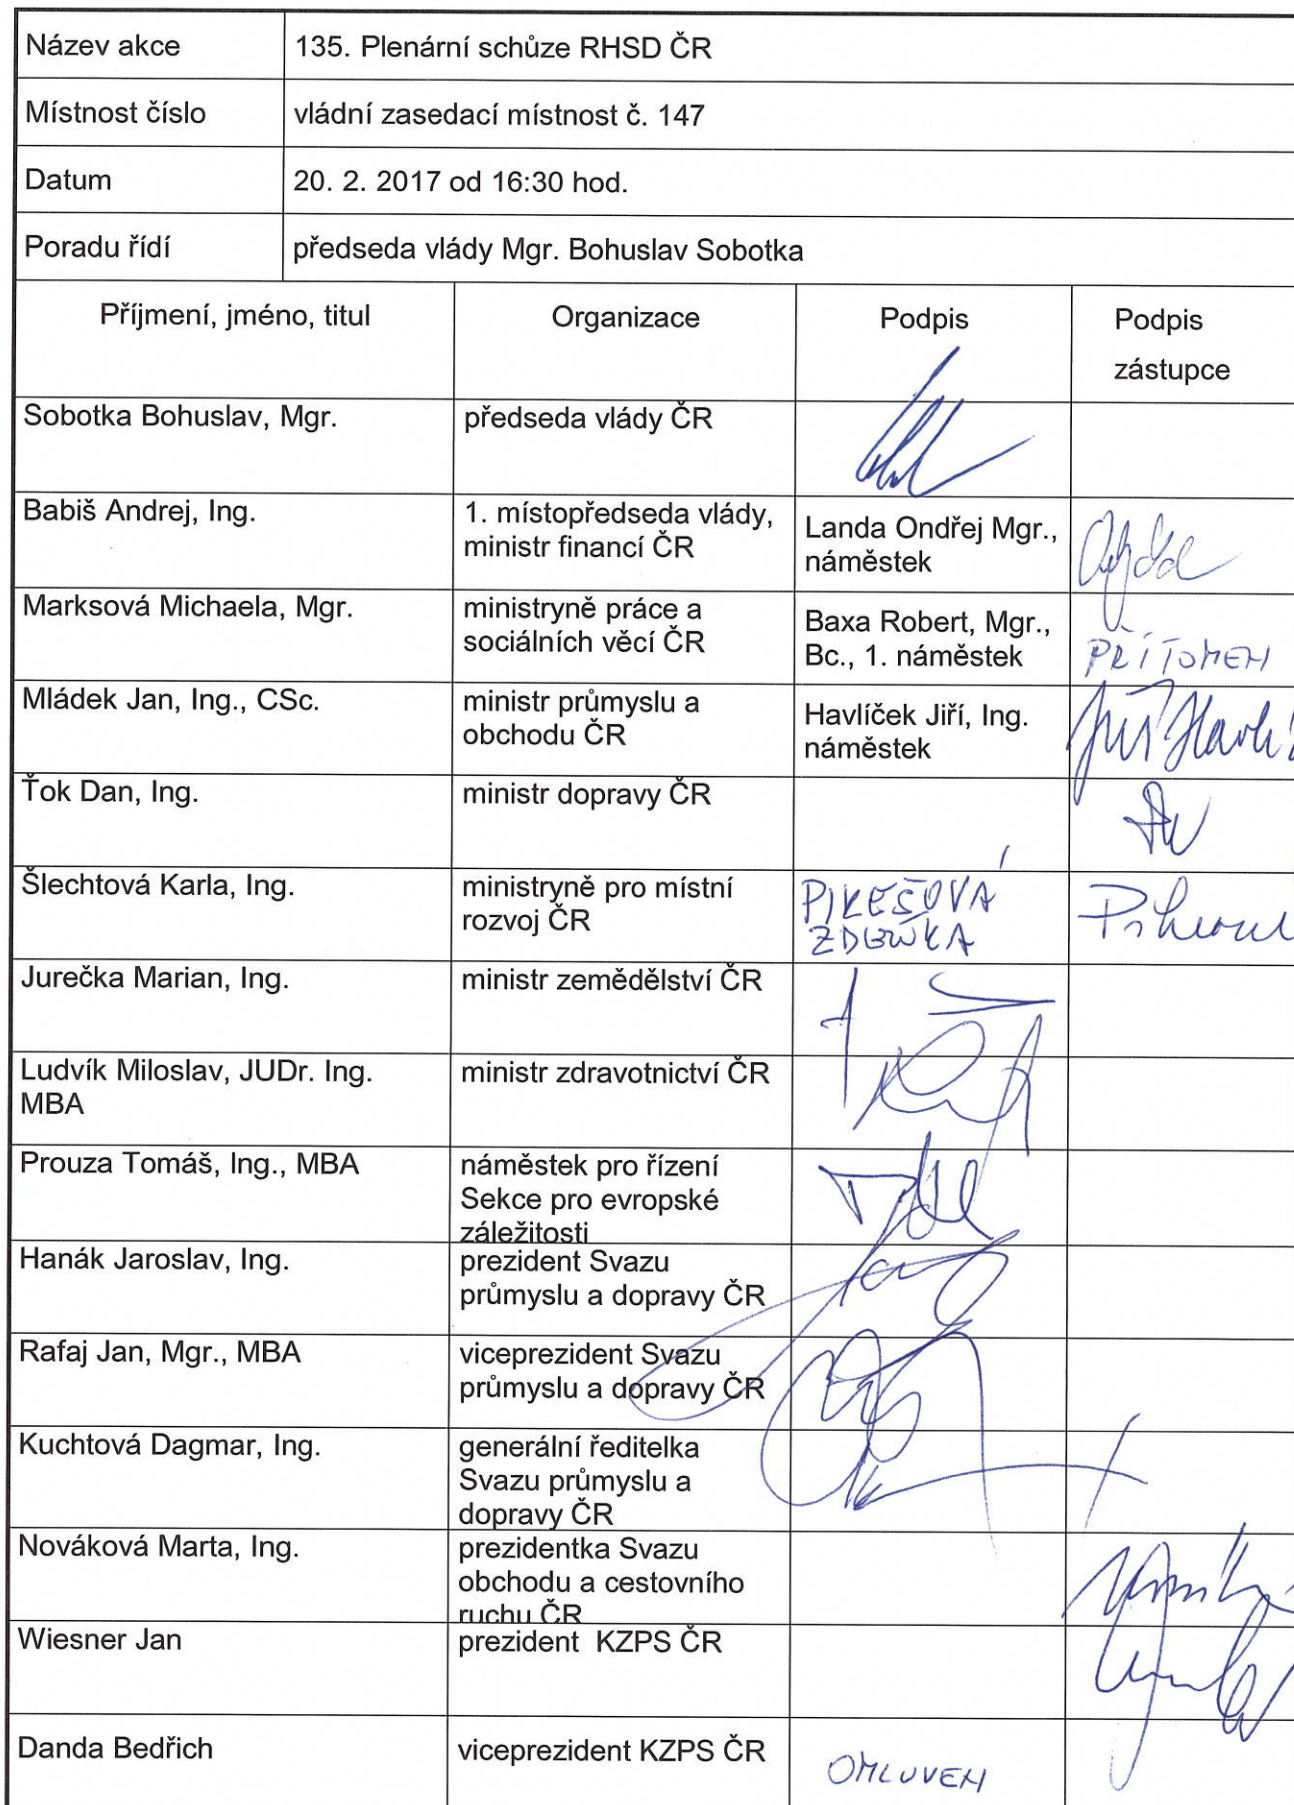 Název akce 135. Plenární schůze RHSD ČR
Místnost číslo vládní zasedací místnost č. 147
Datum 20. 2. 2017 od 16:30 hod.
Poradu řídí předseda vlády Mgr. Bohuslav Sobotka
Příjmení, jméno, titul Organizace Podpis Podpis
zástupce
Sobotka Bohuslav, Mgr. předseda vlády ČR
Babiš Andrej, Ing. 1. místopředseda vlády, Landa Ondřej Mgr.,
ministr financí ČR náměstek
Marksová Michaela, Mgr. ministryně práce a Baxa Robert, Mgr.,
sociálních věcí ČR Bc., 1. náměstek PŘÍTOMEN
Mládek Jan, Ing., CSc. ministr průmyslu a Havlíček Jiří, Ing.
obchodu ČR náměstek
Ťok Dan, Ing. ministr dopravy ČR
Šlechtová Karla, Ing. ministryně pro místní PIKEŠOVÁ
rozvoj ČR ZDEŇKA
Jurečka Marian, Ing. ministr zemědělství ČR
Ludvík Miloslav, JUDr. Ing. ministr zdravotnictví ČR
MBA
Prouza Tomáš, Ing., MBA náměstek pro řízení
Sekce pro evropské
záležitosti
Hanák Jaroslav, Ing. prezident Svazu
průmyslu a dopravy ČR
Rafaj Jan, Mgr., MBA viceprezident Svazu
průmyslu a dopravy ČR
Kuchtová Dagmar, Ing. generální ředitelka
Svazu průmyslu a
dopravy ČR
Nováková Marta, Ing. prezidentka Svazu
obchodu a cestovního
ruchu ČR
Wiesner Jan prezident KZPS ČR
Danda Bedřich viceprezident KZPS ČR OMLUVEN